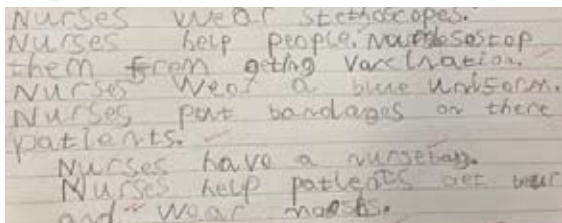 Nurses wear stethoscopes.
Nurses help people. stop
them from geting vaccination.
Nurses wear a blue uniform.
Nurses put bandages on there
patients.
Nurses have a nursebag.
Nurses help patients get
and wear masks.